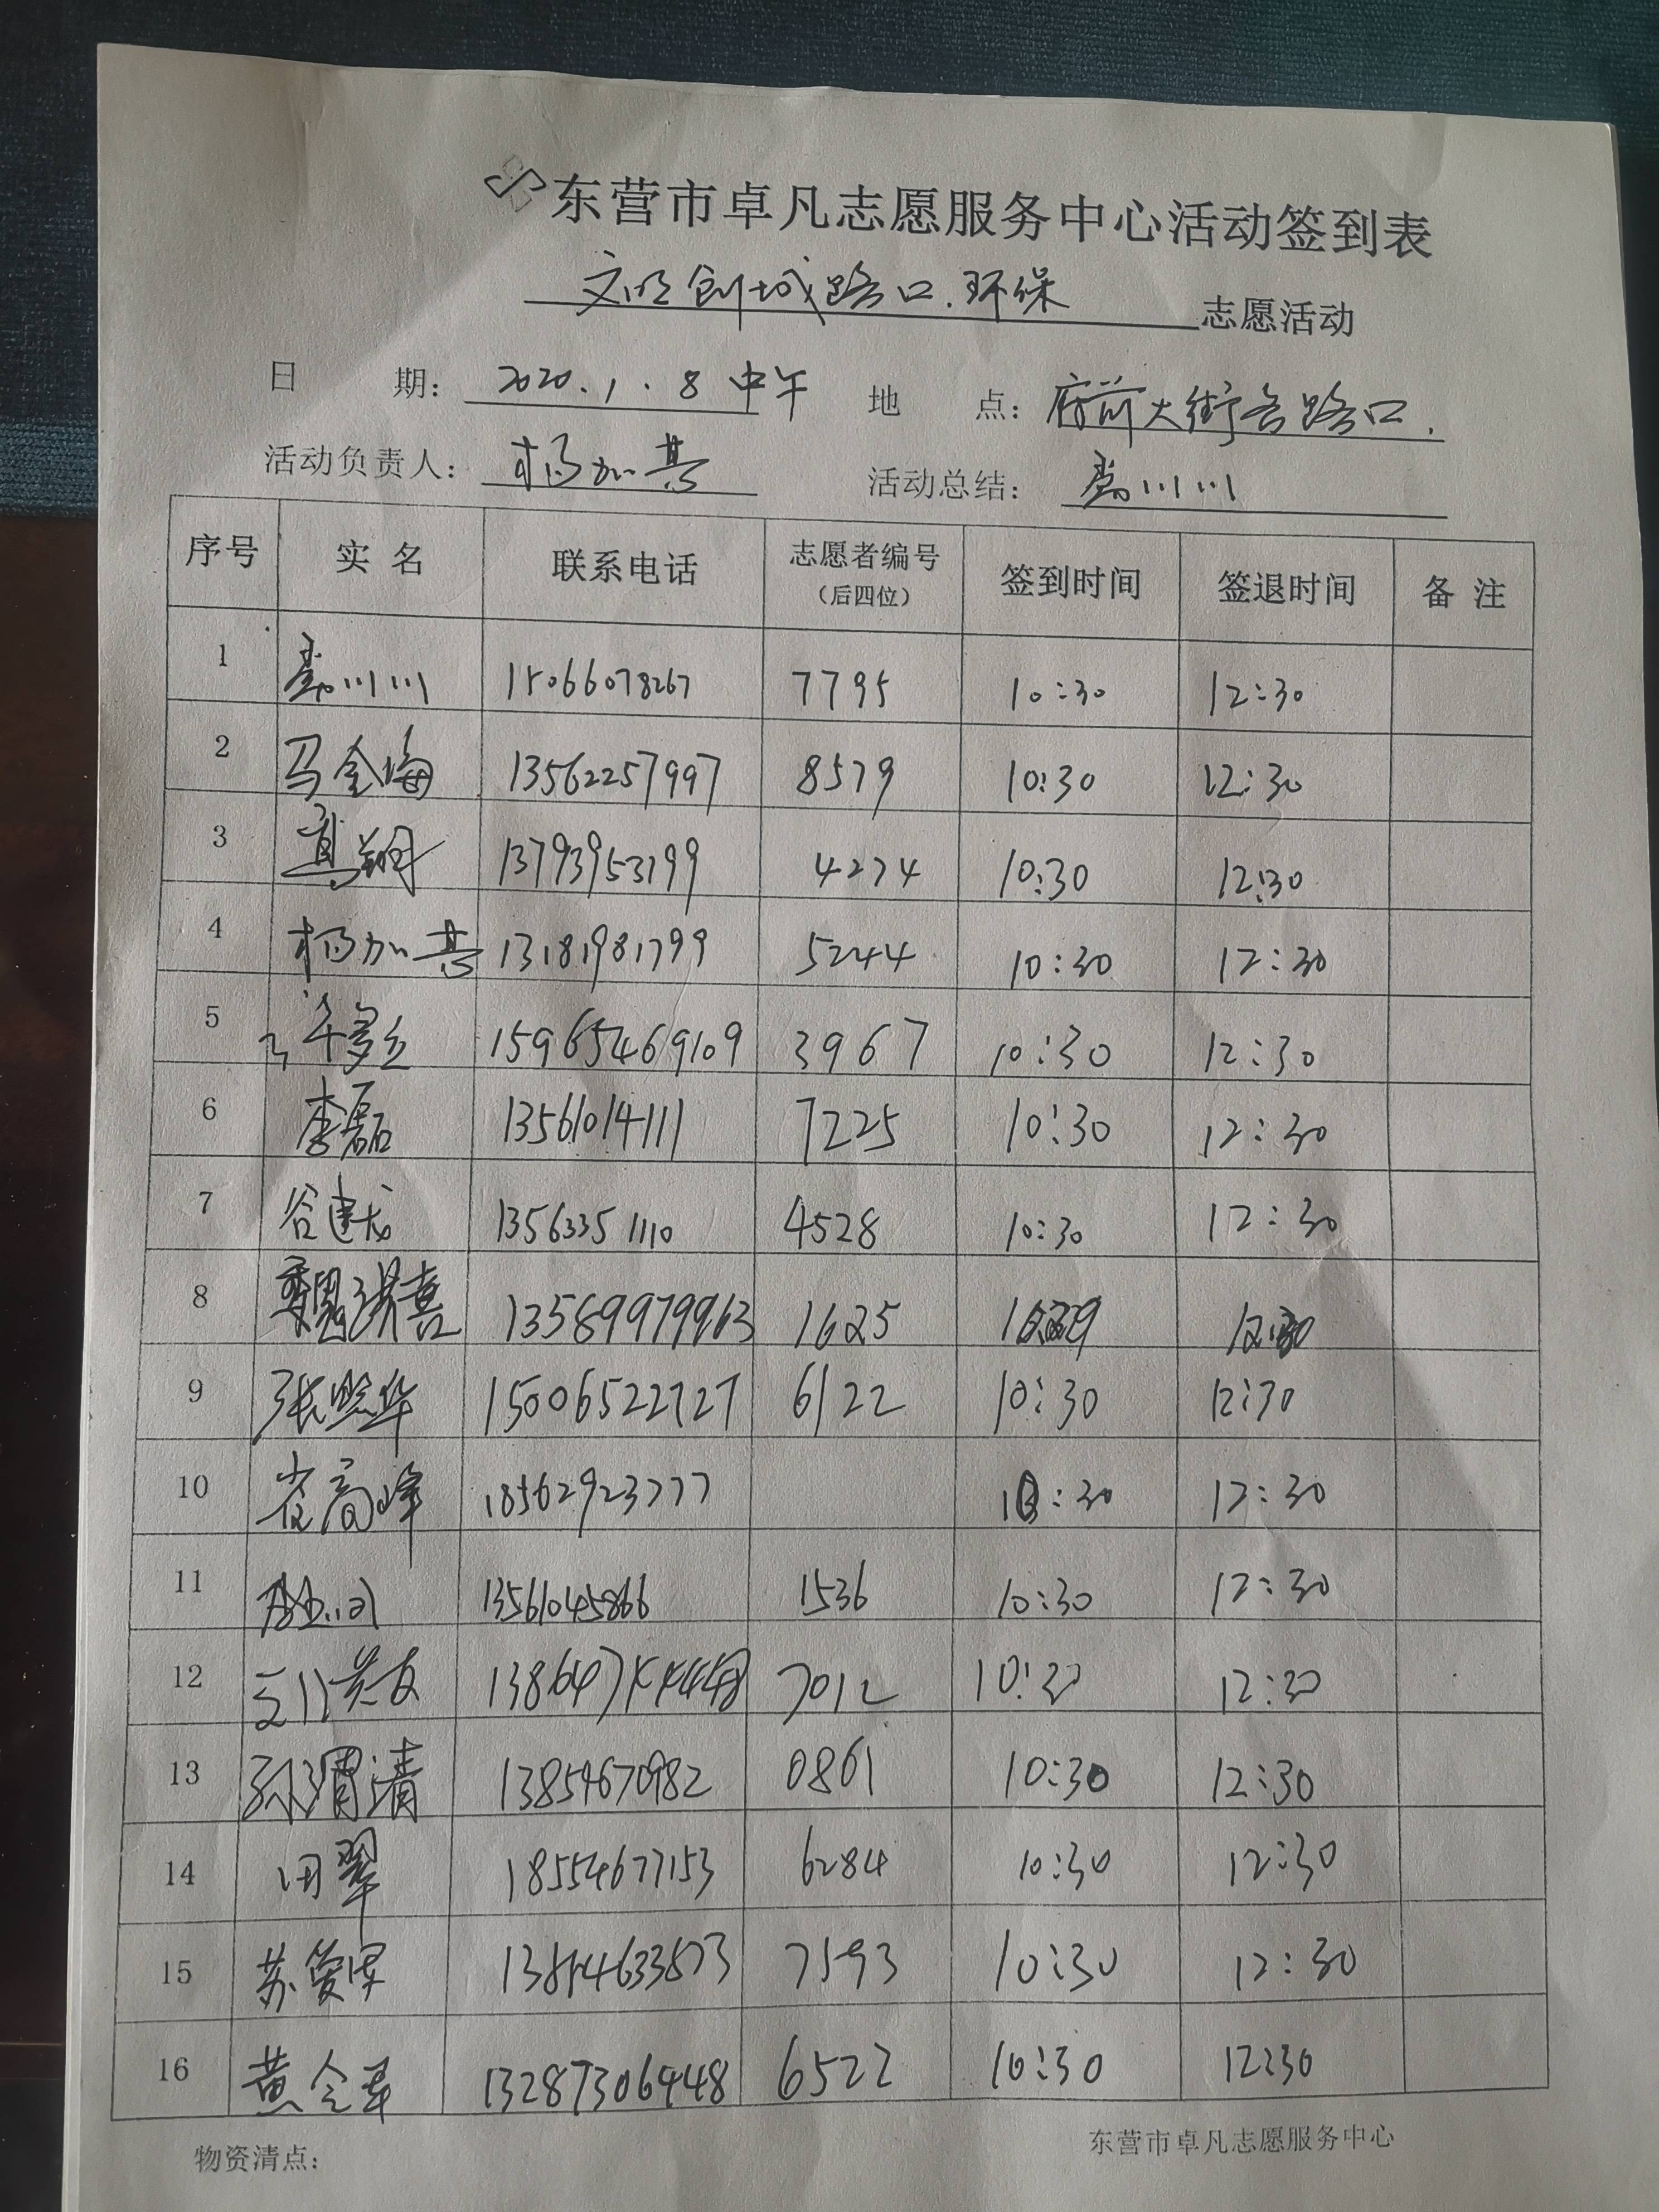 东营市卓凡志愿服务中心活动签到表
文明创城路口.环保 志愿活动
日 期: 2020.1.8 中午 地 点: 府前大街各路口.
活动负责人: 杨加其 活动总结: 川川
序号 实 名 联系电话 志愿者编号(后四位) 签到时间 签退时间 备 注
1 川川 15066078267 7795 10:30 12:30
2 马金梅 13562257997 8579 10:30 12:30
3 翔 13793953199 4274 10:30 12:30
4 杨加其 13181981799 5244 10:30 12:30
5 15965469109 3967 10:30 12:30
6 李磊 13561014111 7225 10:30 12:30
7 谷建龙 13563351110 4528 10:30 12:30
8 魏洪喜 13589979963 1625 12:30
9 张照华 15006522727 6122 10:30 12:30
10 崔高峰 18562923777 10:30 12:30
11 13561045866 1536 10:30 12:30
12 7012 10:30 12:30
13 孙渭清 13854670982 0861 10:30 12:30
14 田翠 18554677153 6284 10:30 12:30
15 苏爱军 13854633573 7593 10:30 12:30
16 黄全军 13287306448 6522 10:30 12:30
物资清点: 东营市卓凡志愿服务中心